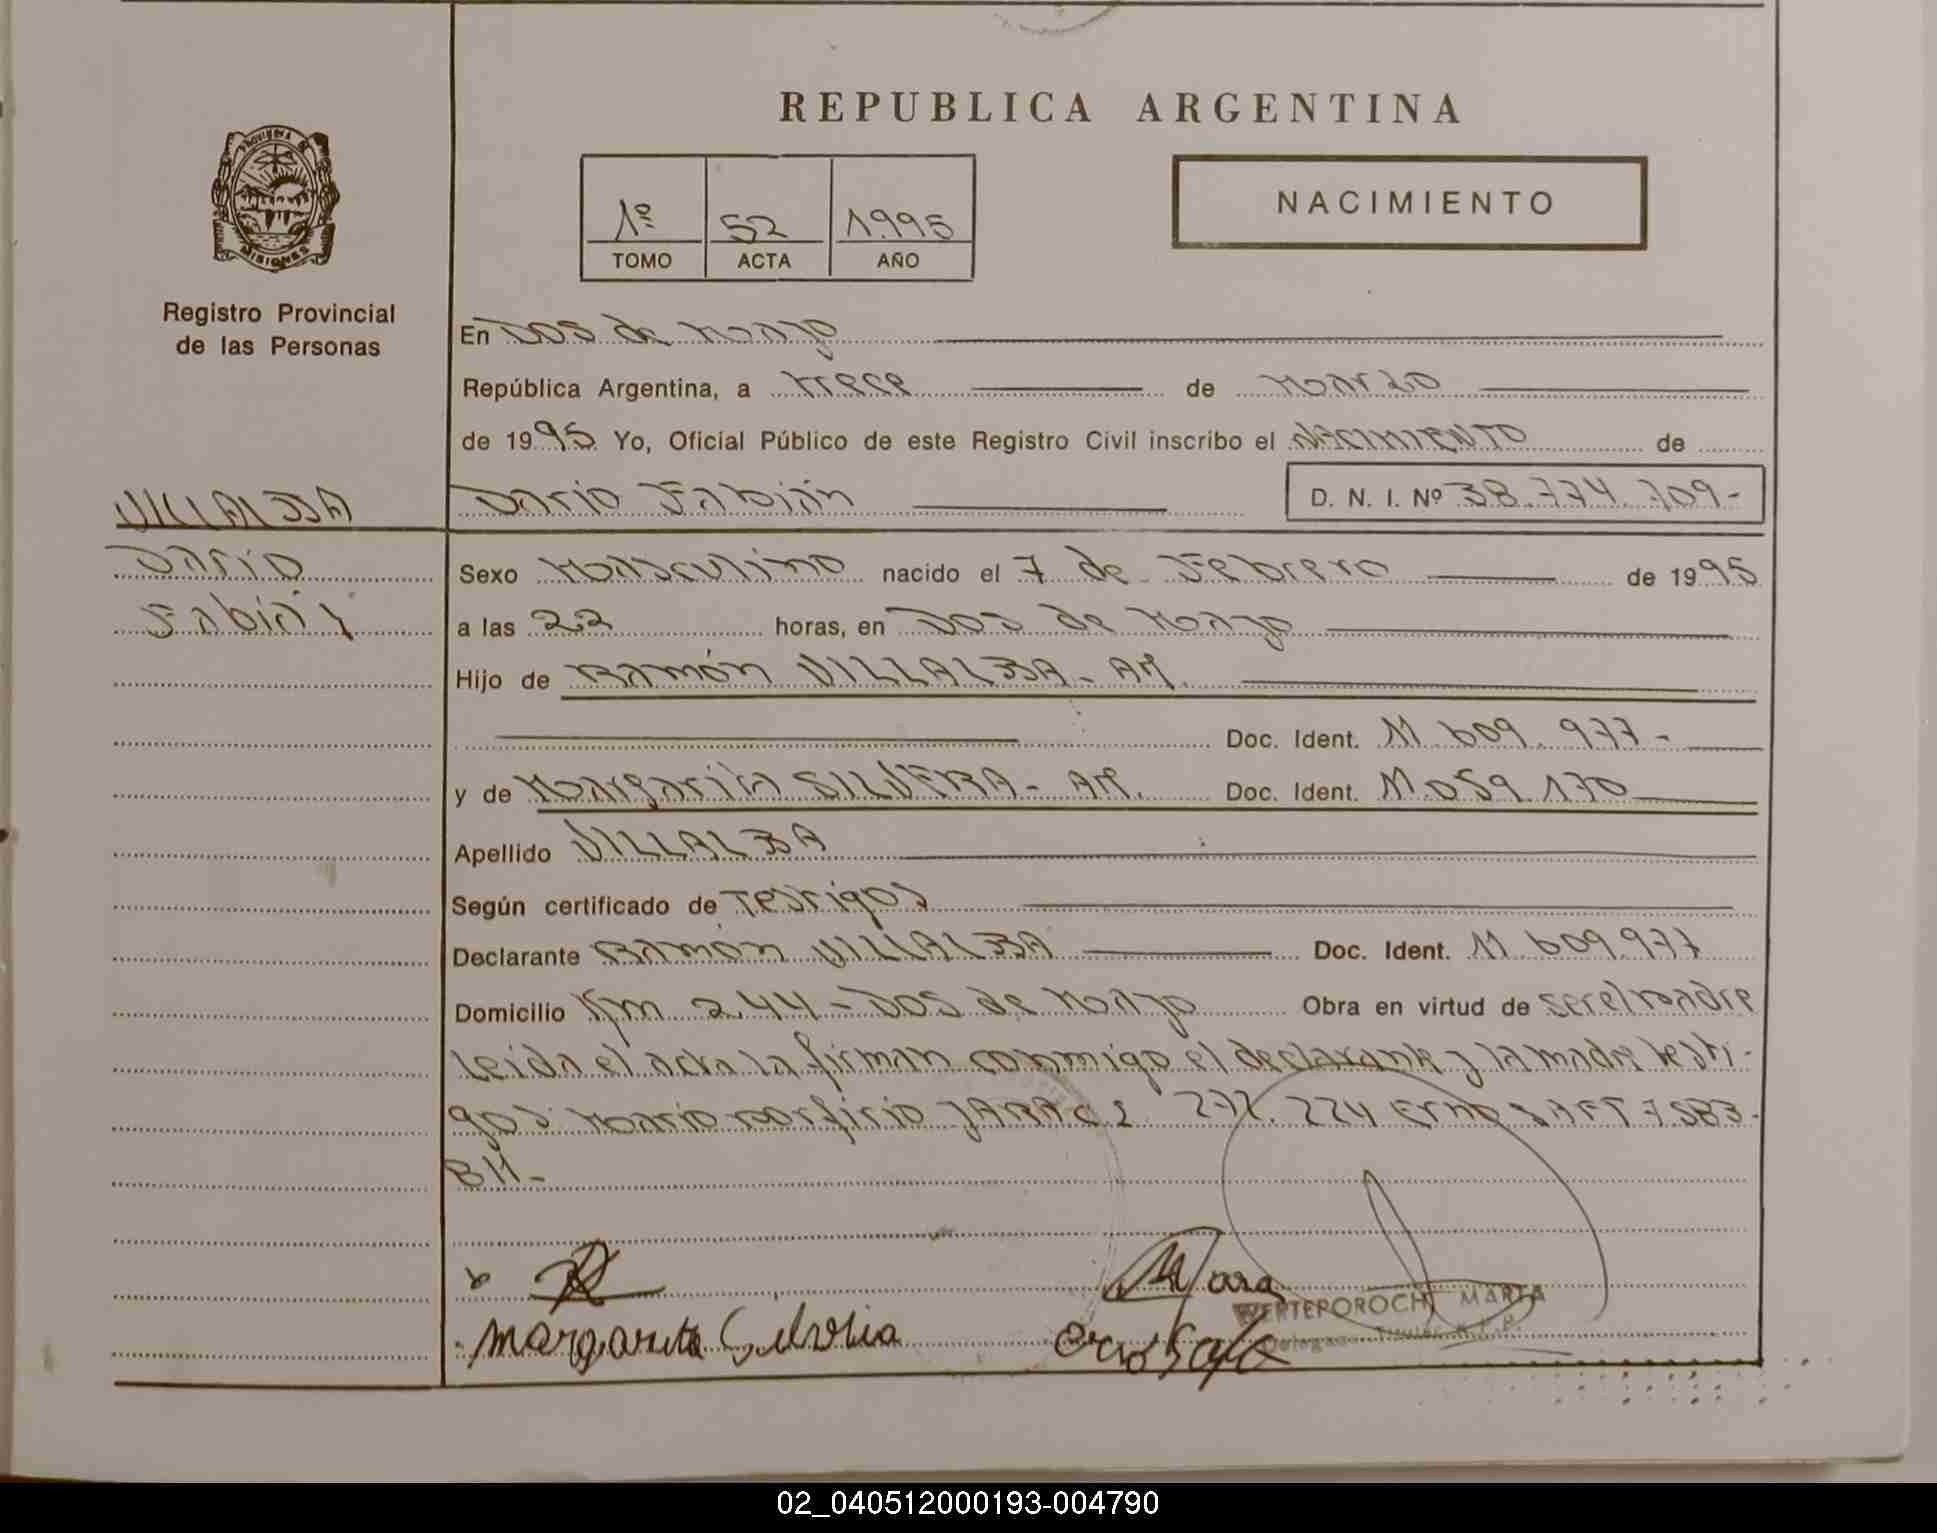 REPUBLICA ARGENTINA
PROVINCIA DE
MISIONES
1º 52 1995
TOMO ACTA AÑO
NACIMIENTO
Registro Provincial
de las Personas
En DOS de Mayo
República Argentina, a trece de Marzo
de 1995 Yo, Oficial Público de este Registro Civil inscribo el NACIMIENTO de
Dario Fabián D. N. I. Nº 38.774.709-
VILLALBA
Dario
Fabián
Sexo Masculino nacido el 7 de Febrero de 1995
a las 22 horas, en Dos de Mayo
Hijo de Ramón VILLALBA - AR.
Doc. Ident. 11.609.977-
y de Margarita SILVERA - AR. Doc. Ident. 11.059.170
Apellido VILLALBA
Según certificado de Testigos
Declarante Ramón VILLALBA Doc. Ident. 11.609.977
Domicilio Km 244 - Dos de Mayo Obra en virtud de ser el padre
Leida el acta la firman conmigo el declarante y la madre testi-
gos Mario Porfirio JARA c I 272.224 Erno 7583-
811-
Margarita Silveira
WERTEPOROCH MARTA
Delegada Titular R.P.
02_040512000193-004790